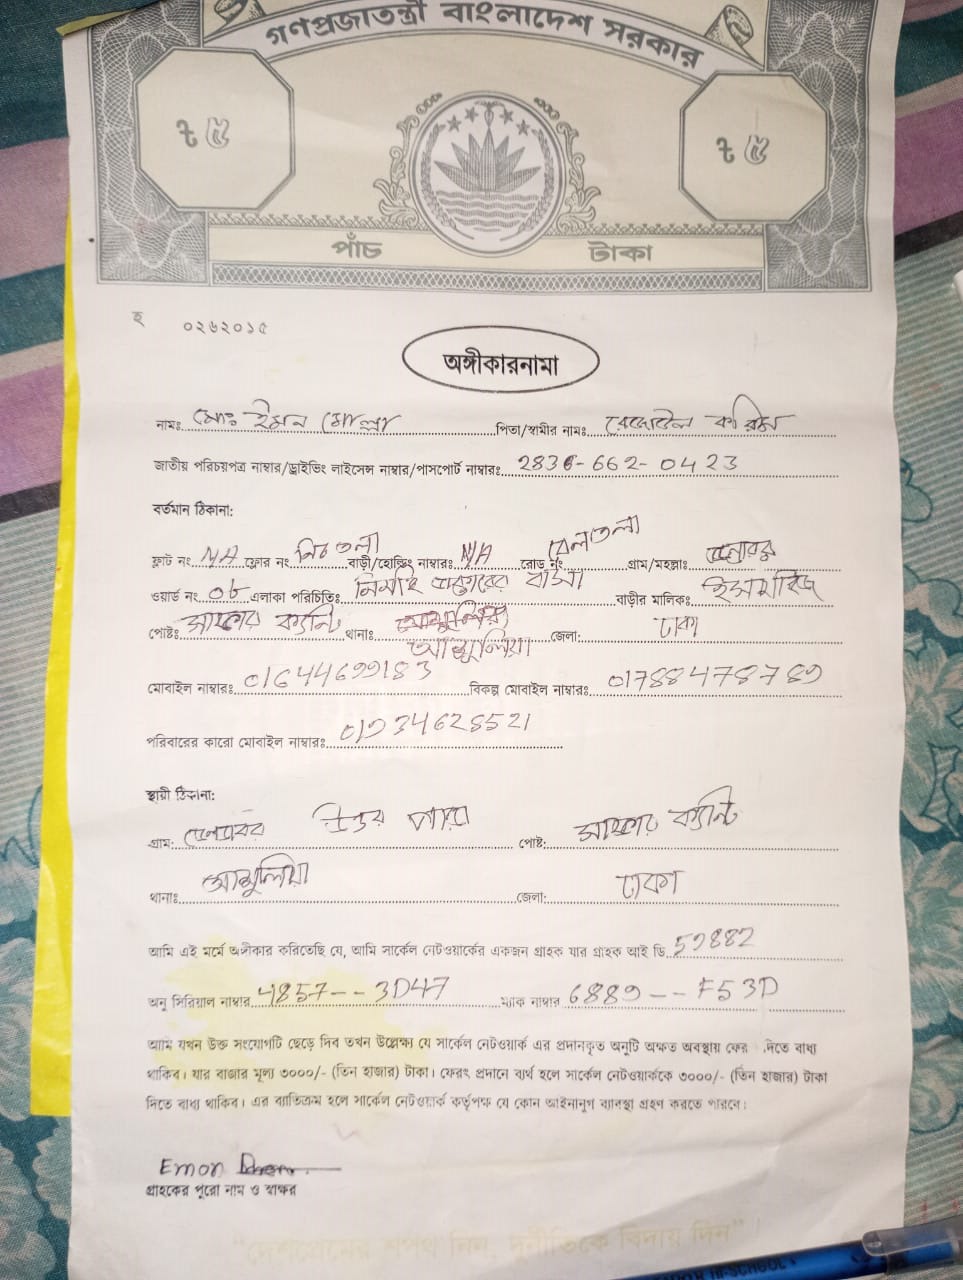 গণপ্রজাতন্ত্রী বাংলাদেশ সরকার
৳ ৫ ৳ ৫
পাঁচ টাকা
হ ০২৬২০১৫
অঙ্গীকারনামা
নামঃ মোঃ ইমন মোল্লা পিতা/স্বামীর নামঃ রেজাউল করিম
জাতীয় পরিচয়পত্র নাম্বার/ড্রাইভিং লাইসেন্স নাম্বার/পাসপোর্ট নাম্বারঃ 2836-662-0423
বর্তমান ঠিকানা:
ফ্লাট নং N/A ফ্লোর নং নিচ তলা বাড়ী/হোল্ডিং নাম্বারঃ N/A রোড নং বেলতলা গ্রাম/মহল্লাঃ
ওয়ার্ড নং ০৮ এলাকা পরিচিতিঃ বাড়ীর মালিকঃ
পোষ্টঃ সাভার ক্যান্ট থানাঃ আশুলিয়া জেলা: ঢাকা
মোবাইল নাম্বারঃ 01644699183 বিকল্প মোবাইল নাম্বারঃ 01788478789
পরিবারের কারো মোবাইল নাম্বারঃ 01934628521
স্থায়ী ঠিকানা:
গ্রাম: উত্তর পাড়া পোষ্ট: সাভার ক্যান্ট
থানাঃ আশুলিয়া জেলা: ঢাকা
আমি এই মর্মে অঙ্গীকার করিতেছি যে, আমি সার্কেল নেটওয়ার্কের একজন গ্রাহক যার গ্রাহক আই ডি 59882
অনু সিরিয়াল নাম্বার 4857--3D47 ম্যাক নাম্বার 6889--F53D
আমি যখন উক্ত সংযোগটি ছেড়ে দিব তখন উল্লেক্ষ্য যে সার্কেল নেটওয়ার্ক এর প্রদানকৃত অনুটি অক্ষত অবস্থায় ফের দিতে বাধ্য
থাকিব। যার বাজার মূল্য ৩০০০/- (তিন হাজার) টাকা। ফেরৎ প্রদানে ব্যর্থ হলে সার্কেল নেটওয়ার্ককে ৩০০০/- (তিন হাজার) টাকা
দিতে বাধ্য থাকিব। এর ব্যাতিক্রম হলে সার্কেল নেটওয়ার্ক কর্তৃপক্ষ যে কোন আইনানুগ ব্যবস্থা গ্রহণ করতে পারবে।
Emon
গ্রাহকের পুরো নাম ও স্বাক্ষর
"দেশপ্রেমের শপথ নিন, দুর্নীতিকে বিদায় দিন"